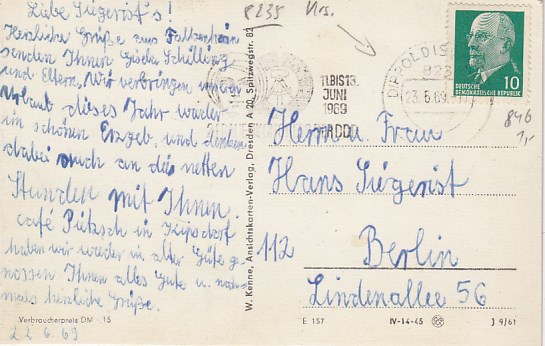 Liebe Siegerist's!
Herzliche Grüße aus Falkenhain
senden Ihnen Gisela Schilling
und Eltern. Wir verbringen unseren
Urlaub dieses Jahr wieder
im schönen Erzgeb. und denken
dabei auch an die netten
Stunden mit Ihnen.
café Pietzsch in Kipsdorf
haben wir wieder in alter Güte ge-
nossen Ihnen alles Gute u. noch-
mals herzliche Grüße.
Verbraucherpreis DM -.15
22 6.69
W. Kenne, Ansichtskarten-Verlag, Dresden A 20, Spitzwegstr. 82
8235
11.BIS 13.
JUNI
1969
DDR
DIPPOLDIS
823
23.6.69
DEUTSCHE
DEMOKRATISCHE REPUBLIK
10
846
1,-
Herrn u. Frau
Hans Siegerist
112 Berlin
Lindenallee 56
E 157 IV-14-45 J 9/61